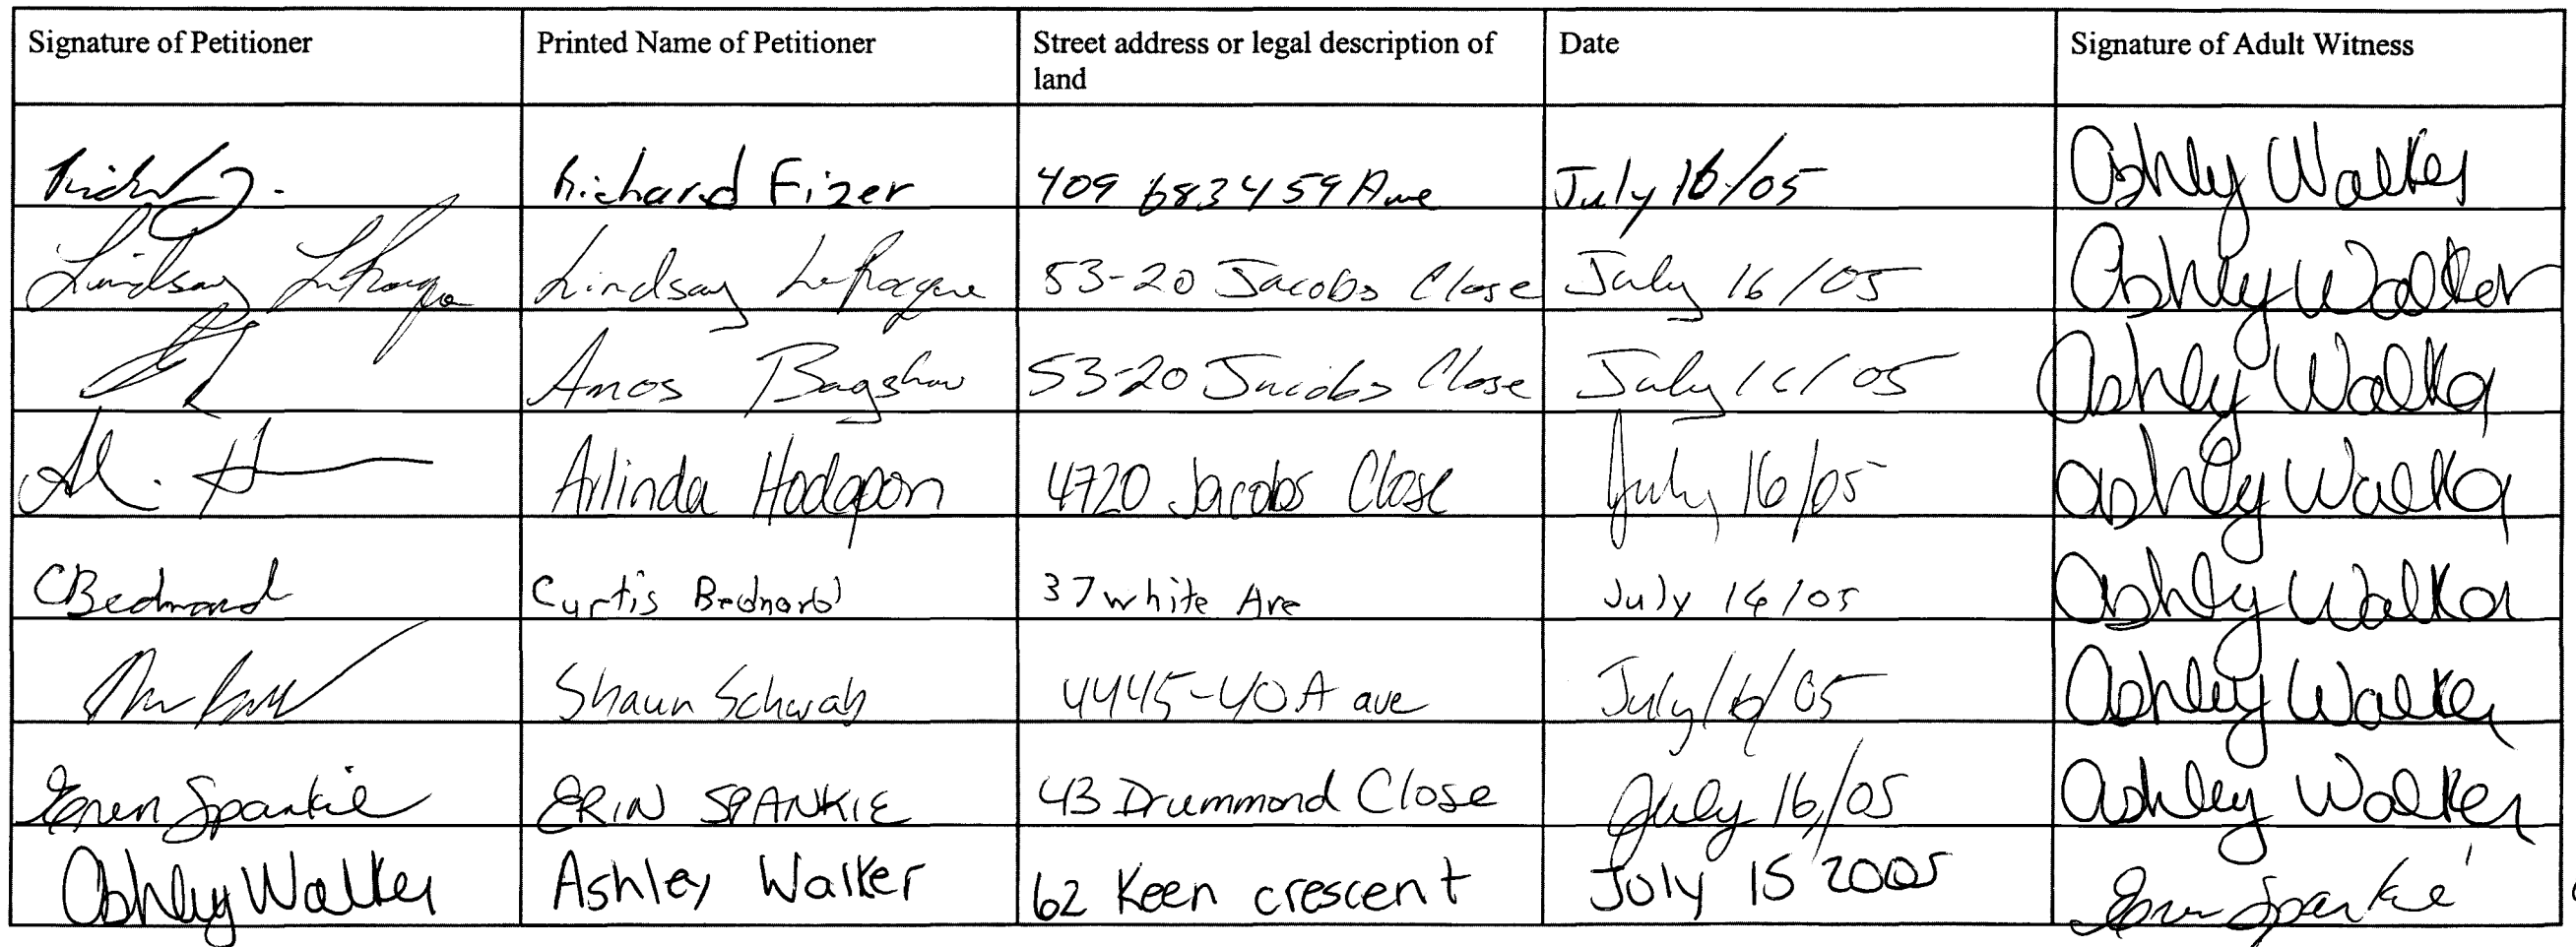 Signature of Petitioner Printed Name of Petitioner Street address or legal description of land Date Signature of Adult Witness
Richard Fizer 409 6834 59 Ave July 16/05 Ashley Walker
Lindsay LeRocque Lindsay LeRocque 53-20 Jacobs Close July 16/05 Ashley Walker
Amos Bagshaw 53-20 Jacobs Close July 16/05 Ashley Walker
Arlinda Hodgson 4720 Jacobs Close July 16/05 Ashley Walker
CBednard Curtis Bednard 37 white Ave July 16/05 Ashley Walker
Shaun Schwab 4445-40A ave July 16/05 Ashley Walker
Erin Spankie ERIN SPANKIE 43 Drummond Close July 16/05 Ashley Walker
Ashley Walker Ashley Walker 62 Keen crescent July 15 2005 Erin Spankie